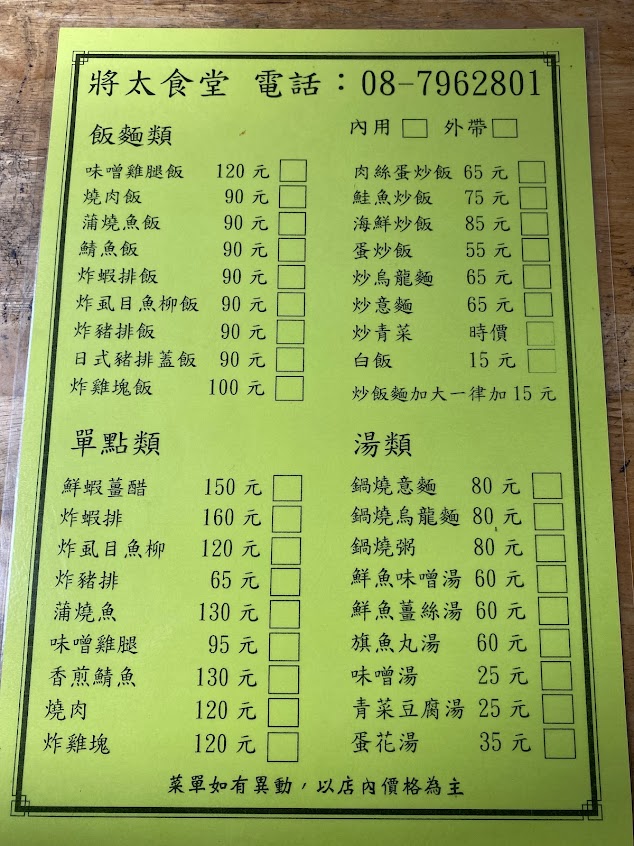 將太食堂 電話：08-7962801
內用 □ 外帶 □
飯麵類
味噌雞腿飯 120 元 □
燒肉飯 90 元 □
蒲燒魚飯 90 元 □
鯖魚飯 90 元 □
炸蝦排飯 90 元 □
炸虱目魚柳飯 90 元 □
炸豬排飯 90 元 □
日式豬排蓋飯 90 元 □
炸雞塊飯 100 元 □
肉絲蛋炒飯 65 元 □
鮭魚炒飯 75 元 □
海鮮炒飯 85 元 □
蛋炒飯 55 元 □
炒烏龍麵 65 元 □
炒意麵 65 元 □
炒青菜 時價 □
白飯 15 元 □
炒飯麵加大一律加 15 元
單點類
鮮蝦薑醋 150 元 □
炸蝦排 160 元 □
炸虱目魚柳 120 元 □
炸豬排 65 元 □
蒲燒魚 130 元 □
味噌雞腿 95 元 □
香煎鯖魚 130 元 □
燒肉 120 元 □
炸雞塊 120 元 □
湯類
鍋燒意麵 80 元 □
鍋燒烏龍麵 80 元 □
鍋燒粥 80 元 □
鮮魚味噌湯 60 元 □
鮮魚薑絲湯 60 元 □
旗魚丸湯 60 元 □
味噌湯 25 元 □
青菜豆腐湯 25 元 □
蛋花湯 35 元 □
菜單如有異動，以店內價格為主